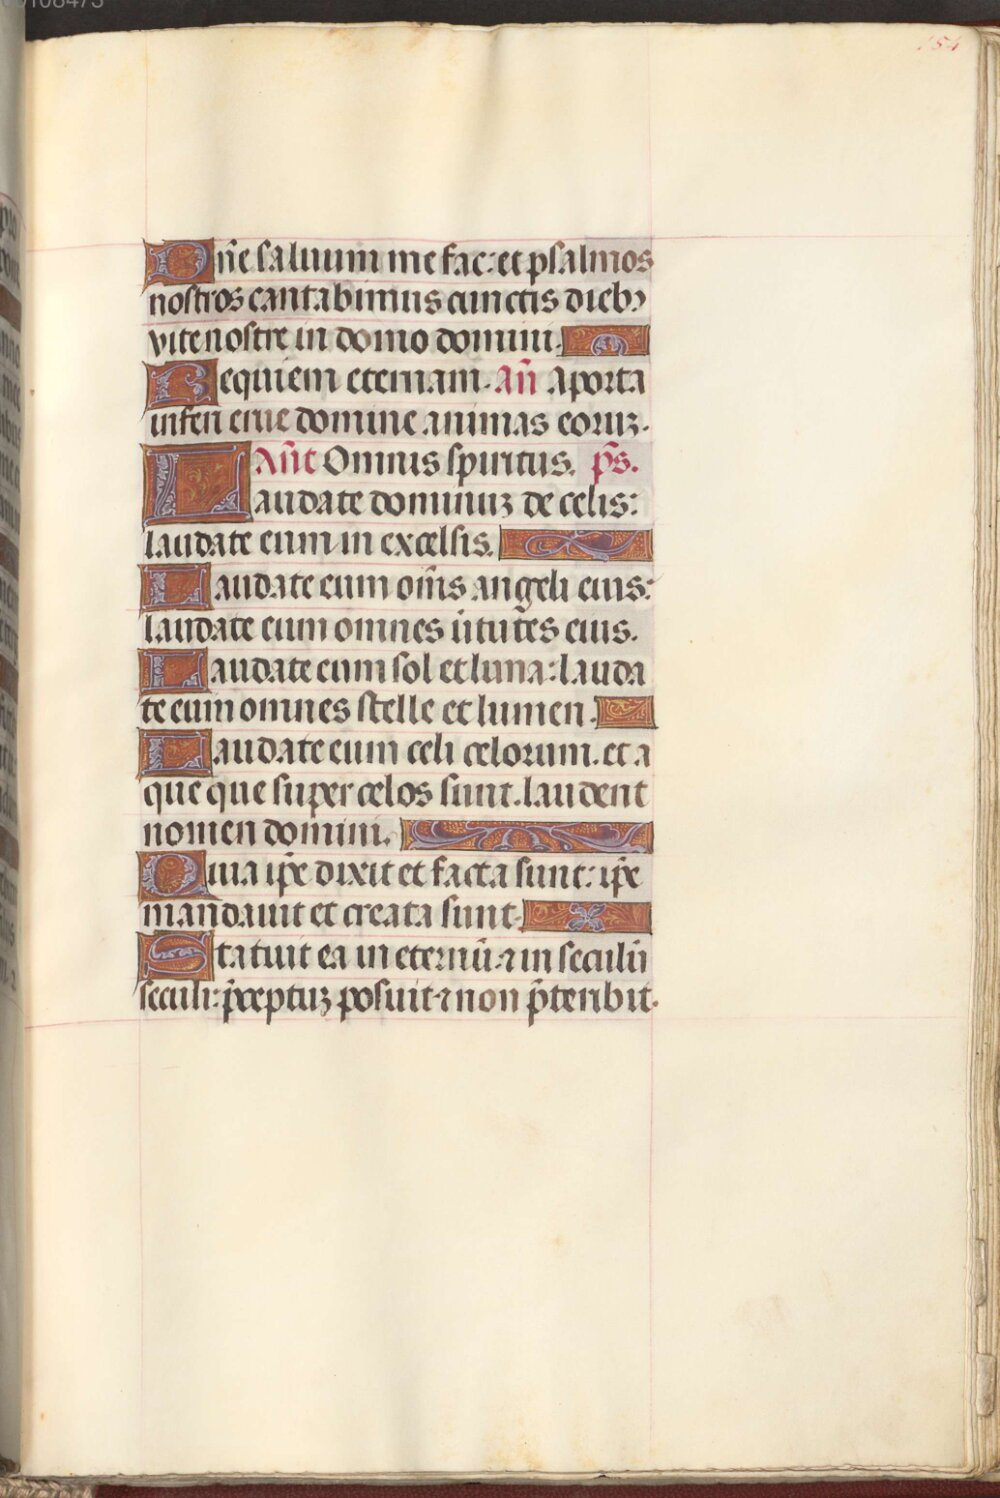 154
Dn̄e saluum me fac: et psalmos
nostros cantabimus cunctis dieb⁹
vite nostre in domo domini.
Requiem eternam. Añ Aporta
inferi erue domine animas eoruꝫ.
Añt Omnis spiritus. p̄s.
Laudate dominuꝫ de celis:
laudate eum in excelsis.
Laudate eum om̄s angeli eius:
laudate eum omnes ũtutes eius.
Laudate eum sol et luna: lauda
te eum omnes stelle et lumen.
Laudate eum celi celorum. et a
que que super celos sunt. laudent
nomen domini.
Quia ip̄e dixit et facta sunt: ip̄e
mandauit et creata sunt.
Statuit ea in eternū ⁊ in seculū
seculi: p̄ceptuꝫ posuit ⁊ non p̄teribit.